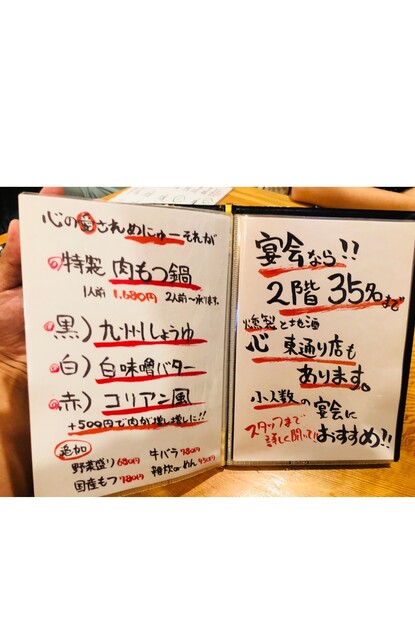 心の召されめにゅーそれが
特製 肉もつ鍋
1人前 1,680円 2人前〜承ります。
黒) 九州しょうゆ
白) 白味噌バター
赤) コリアン風
+500円で肉が増し増しに!!
追加
野菜盛り 680円 牛バラ 780円
国産もつ 780円 雑炊orめん 450円
宴会なら!!
2階 35名まで
燻製と地酒
心 東通り店も
あります。
小人数の宴会に
おすすめ!!
スタッフまで
詳しく聞いて!!